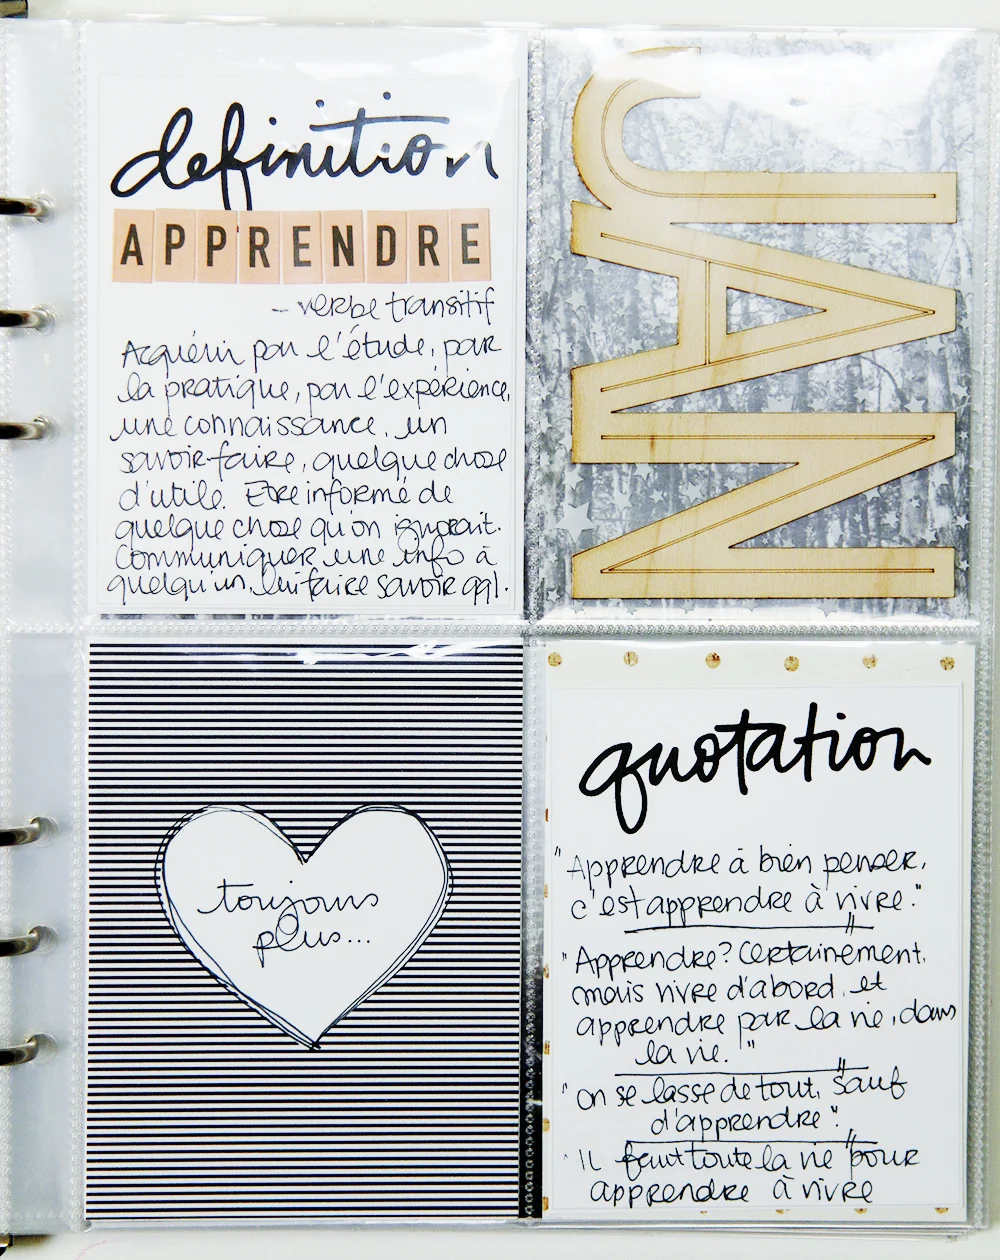 definition
APPRENDRE
- verbe transitif
Acquérir par l'étude, par
la pratique, par l'expérience,
une connaissance, un
savoir-faire, quelque chose
d'utile. Etre informé de
quelque chose qu'on ignorait.
Communiquer une info à
quelqu'un, lui faire savoir qql.
JAN
toujours
plus...
quotation
"Apprendre à bien penser,
c'est apprendre à vivre."
"Apprendre? Certainement,
mais vivre d'abord, et
apprendre par la vie, dans
la vie."
"On se lasse de tout, sauf
d'apprendre".
"Il faut toute la vie pour
apprendre à vivre